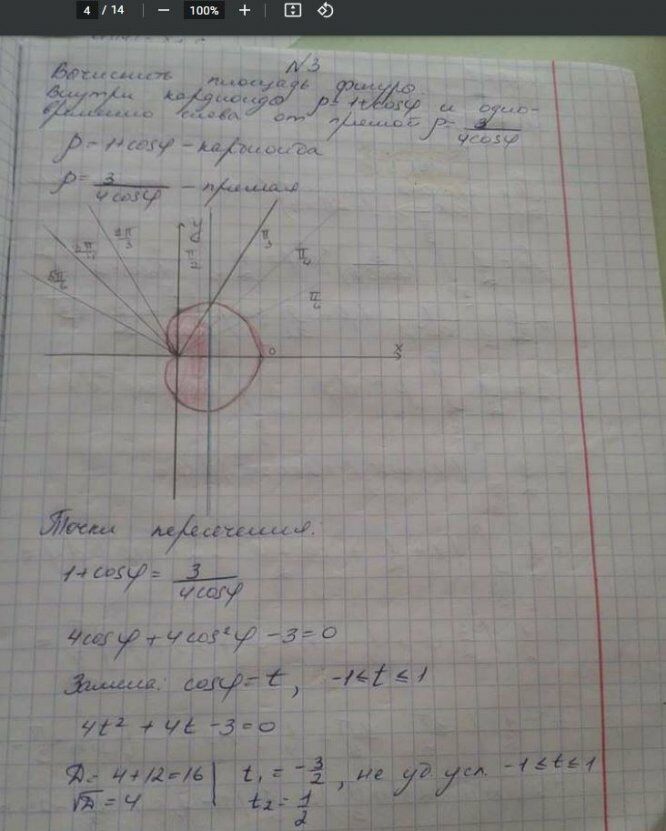 4 / 14 — 100% +
N3
Вычислить площадь фигуры
внутри кардиоиды ρ=1+cosφ и одно-
временно слева от прямой ρ= 3/(4cosφ)
ρ=1+cosφ – кардиоида
ρ= 3/(4cosφ) – прямая
2π/3
5π/6
π/2
π/3
π/4
x
0
Точки пересечения.
1+cosφ= 3/(4cosφ)
4cosφ+4cos²φ -3=0
Замена: cosφ=t, -1≤t≤1
4t² +4t -3=0
D= 4+12=16 | t₁ = -3/2, не уд. усл. -1≤t≤1
√D = 4 | t₂= 1/2